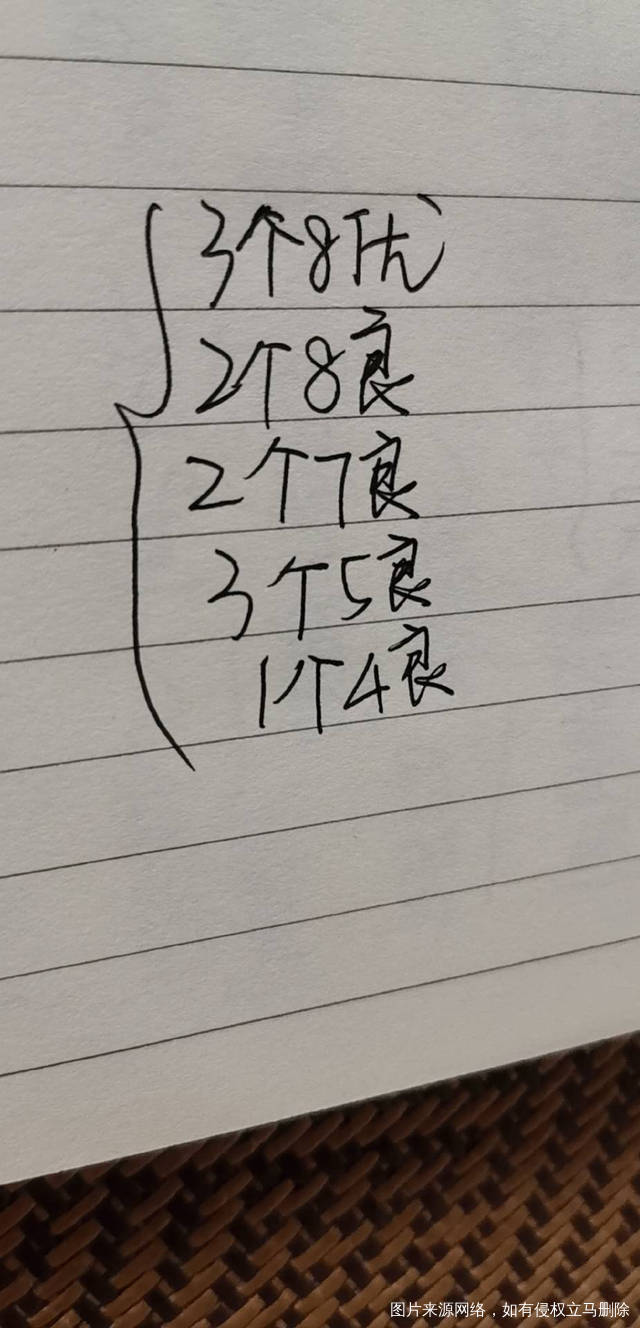 3个8优
2个8良
2个7良
3个5良
1个4良
图片来源网络，如有侵权立马删除